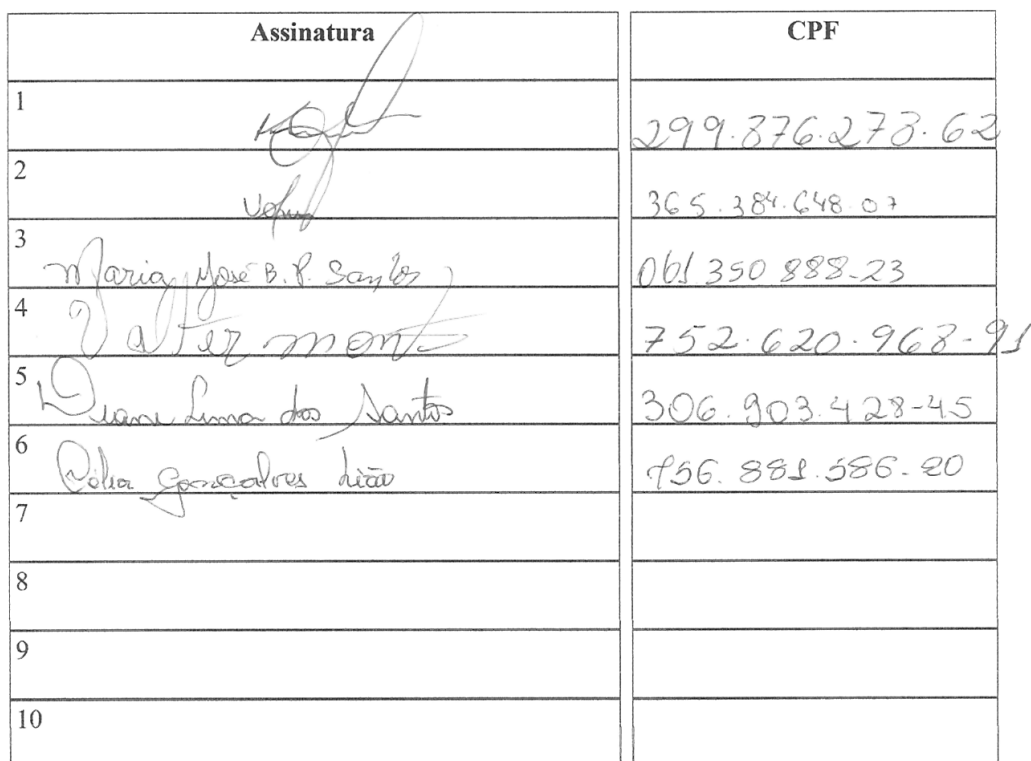 Assinatura CPF
1 299.876.273.62
2 365.384.648.07
3 Maria José B. P. Santos 061 350 888-23
4 Valter mont 752.620.968-91
5 Lima dos Santos 306.903.428-45
6 Célia Gonçalves Lião 756.881.586-20
7
8
9
10